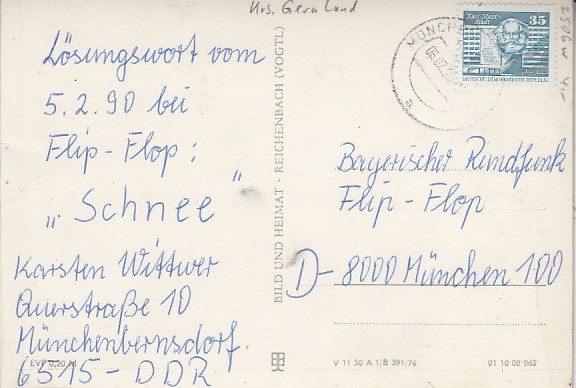 Krs. Gera Land
Lösungswort vom
5.2.90 bei
Flip-Flop:
„Schnee"
Karsten Wittwer
Querstraße 10
Münchenbernsdorf
6515 - DDR
EVP 0,20 M
BILD UND HEIMAT · REICHENBACH (VOGTL)
MÜNCHE
35
Karl-Marx-
Stadt
DEUTSCHE DEMOKRATISCHE REPUBLIK
Bayerischer Rundfunk
Flip-Flop
D- 8000 München 100
V 11 50 A 1/B 391/76
01 10 02 062